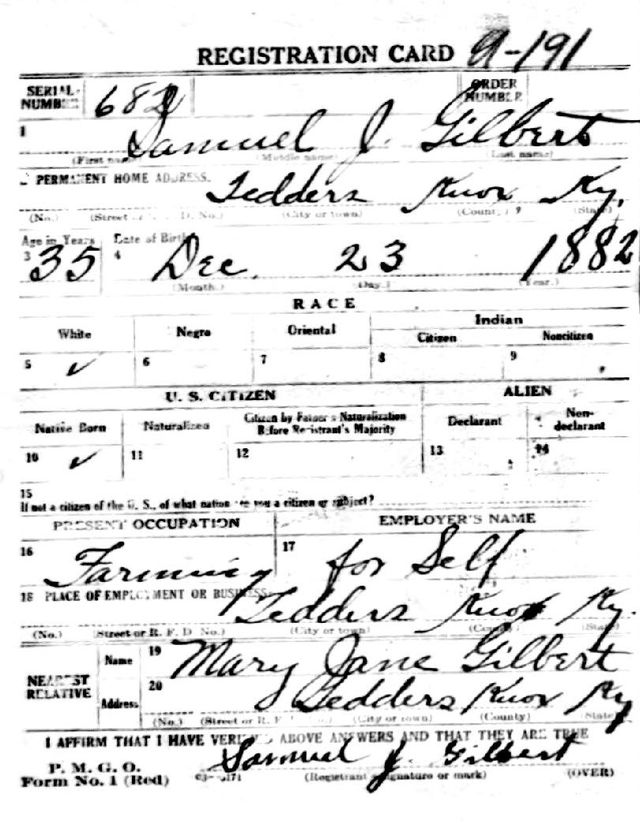 REGISTRATION CARD A-191
SERIAL NUMBER 682 ORDER NUMBER
1 Samuel J. Gilbert
(First name) (Middle name) (Last name)
2 PERMANENT HOME ADDRESS. Tedders Knox Ky.
(No.) (Street or R. F. D. No.) (City or town) (County) (State)
Age in Years Date of Birth
3 35 4 Dec. 23 1882
(Month.) (Day.) (Year.)
RACE
White Negro Oriental Indian
Citizen Noncitizen
5 ✓ 6 7 8 9
U. S. CITIZEN ALIEN
Native Born Naturalized Citizen by Father's Naturalization Before Registrant's Majority Declarant Non-declarant
10 ✓ 11 12 13 14
15
If not a citizen of the U. S., of what nation are you a citizen or subject?
PRESENT OCCUPATION EMPLOYER'S NAME
16 Farming 17 for Self
18 PLACE OF EMPLOYMENT OR BUSINESS. Tedders Knox Ky.
(No.) (Street or R. F. D. No.) (City or town) (County) (State)
NEAREST RELATIVE Name 19 Mary Jane Gilbert
Address 20 Tedders Knox Ky
(No.) (Street or R. F. D. No.) (City or town) (County) (State)
I AFFIRM THAT I HAVE VERIFIED ABOVE ANSWERS AND THAT THEY ARE TRUE
P. M. G. O.
Form No. 1 (Red) Samuel J. Gilbert
(Registrant signature or mark) (OVER)